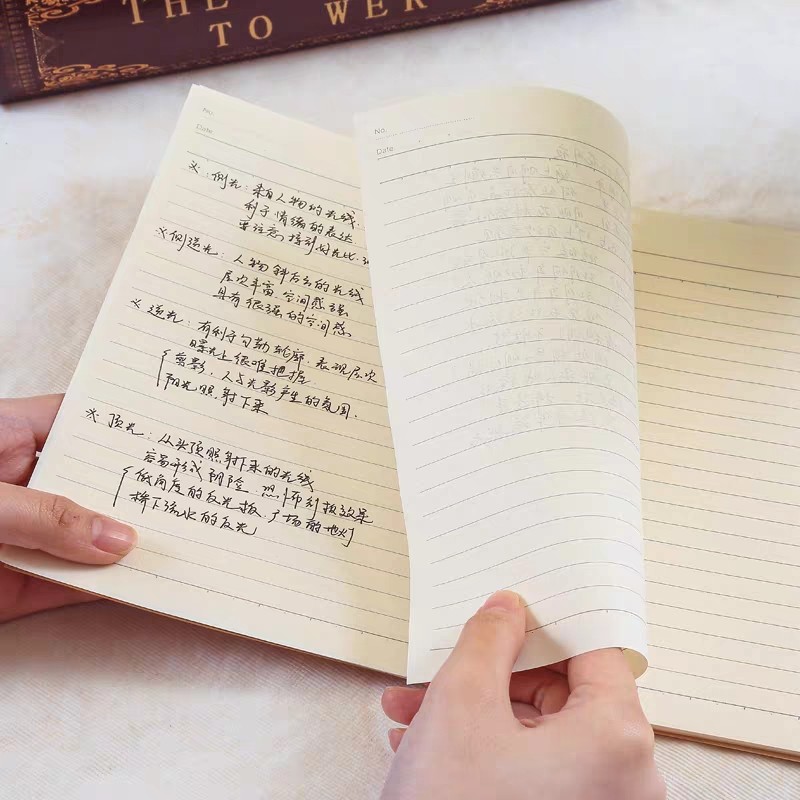 THE
TO WER
No.
Date
※.侧光:来自人物的光线.
利于情绪的表达
要注意,掌引好光比.
※侧逆光:人物斜后方的光线
层次丰富.空间感强
具有很强的空间感
※逆光:有利于勾勒轮廓.表现层次
曝光上很难把握
剪影,人与光影产生的氛围.
阳光照射下来
※顶光:从头顶照射下来的光线
容易形成阴险.恐怖刺激效果
低角度的反光板.广场前地灯
桥下流水的反光
No.
Date